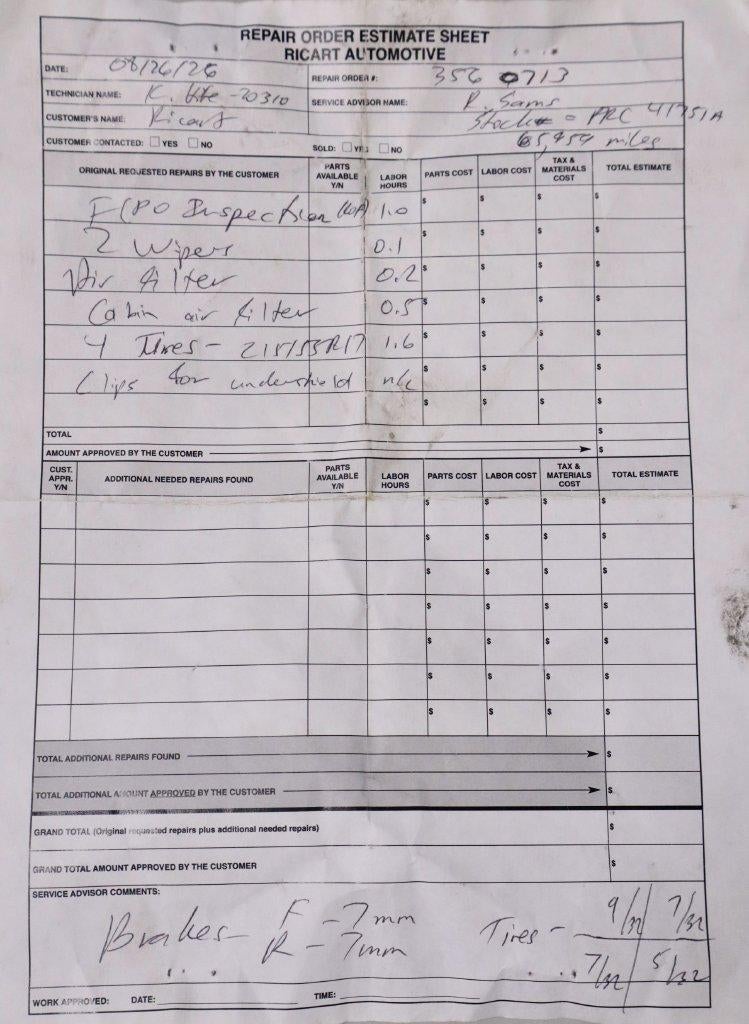 REPAIR ORDER ESTIMATE SHEET
RICART AUTOMOTIVE
DATE: 08/26/26 REPAIR ORDER #: 356 0713
TECHNICIAN NAME: K. -20310 SERVICE ADVISOR NAME: R. Sams
CUSTOMER'S NAME: Ricart Stock# = PRC 41751A
65,454 miles
CUSTOMER CONTACTED: ☐ YES ☐ NO SOLD: ☐ YES ☐ NO
ORIGINAL REQUESTED REPAIRS BY THE CUSTOMER PARTS AVAILABLE Y/N LABOR HOURS PARTS COST LABOR COST TAX & MATERIALS COST TOTAL ESTIMATE
FCPO Inspection 1.0 $ $ $ $
2 Wipers 0.1 $ $ $ $
Air filter 0.2 $ $ $ $
Cabin air filter 0.5 $ $ $ $
4 Tires - 215/55R17 1.6 $ $ $ $
Clips for undershield n/c $ $ $ $
$ $ $ $
TOTAL $
AMOUNT APPROVED BY THE CUSTOMER $
CUST. APPR. Y/N ADDITIONAL NEEDED REPAIRS FOUND PARTS AVAILABLE Y/N LABOR HOURS PARTS COST LABOR COST TAX & MATERIALS COST TOTAL ESTIMATE
$ $ $ $
$ $ $ $
$ $ $ $
$ $ $ $
$ $ $ $
$ $ $ $
$ $ $ $
TOTAL ADDITIONAL REPAIRS FOUND $
TOTAL ADDITIONAL AMOUNT APPROVED BY THE CUSTOMER $
GRAND TOTAL (Original requested repairs plus additional needed repairs) $
GRAND TOTAL AMOUNT APPROVED BY THE CUSTOMER $
SERVICE ADVISOR COMMENTS:
Brakes - F - 7mm Tires - 9/32 7/32
R - 7mm 7/32 5/32
WORK APPROVED: DATE: TIME: